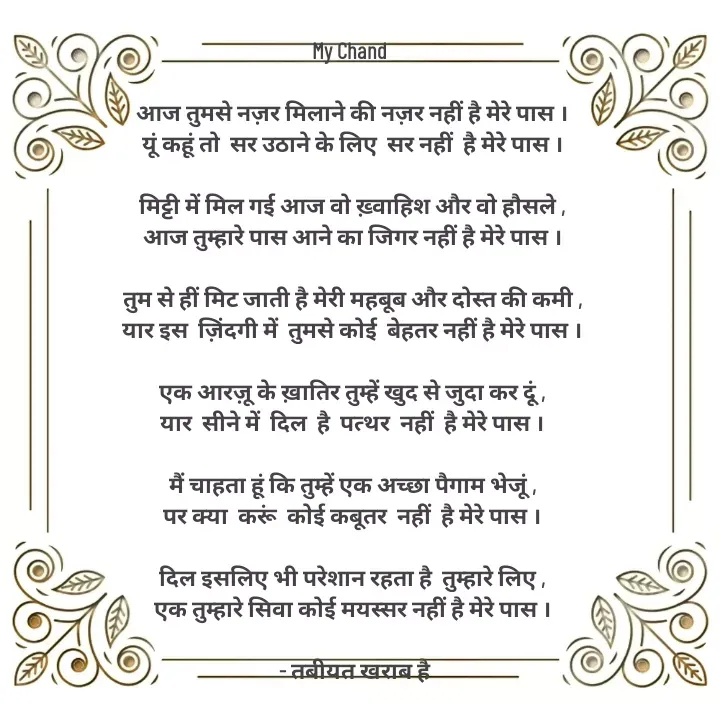 My Chand
आज तुमसे नज़र मिलाने की नज़र नहीं है मेरे पास ।
यूं कहूं तो सर उठाने के लिए सर नहीं है मेरे पास ।
मिट्टी में मिल गई आज वो ख़्वाहिश और वो हौसले ,
आज तुम्हारे पास आने का जिगर नहीं है मेरे पास ।
तुम से हीं मिट जाती है मेरी महबूब और दोस्त की कमी ,
यार इस ज़िंदगी में तुमसे कोई बेहतर नहीं है मेरे पास ।
एक आरज़ू के ख़ातिर तुम्हें खुद से जुदा कर दूं ,
यार सीने में दिल है पत्थर नहीं है मेरे पास ।
मैं चाहता हूं कि तुम्हें एक अच्छा पैगाम भेजूं ,
पर क्या करूं कोई कबूतर नहीं है मेरे पास ।
दिल इसलिए भी परेशान रहता है तुम्हारे लिए ,
एक तुम्हारे सिवा कोई मयस्सर नहीं है मेरे पास ।
- तबीयत खराब है